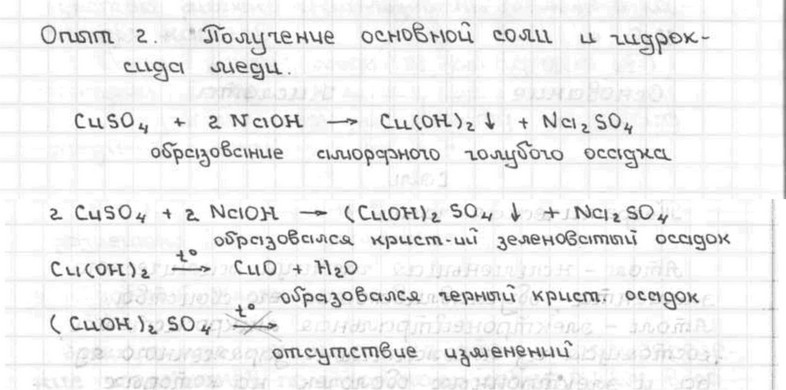 Опыт 2. Получение основной соли и гидрок-
сида меди.
CuSO₄ + 2 NaOH → Cu(OH)₂ ↓ + Na₂SO₄
образование аморфного голубого осадка
2 CuSO₄ + 2 NaOH → (CuOH)₂ SO₄ ↓ + Na₂SO₄
образовался крист-ий зеленоватый осадок
Cu(OH)₂ →t° CuO + H₂O
образовался черный крист. осадок
(CuOH)₂SO₄ →t°
отсутствие изменений